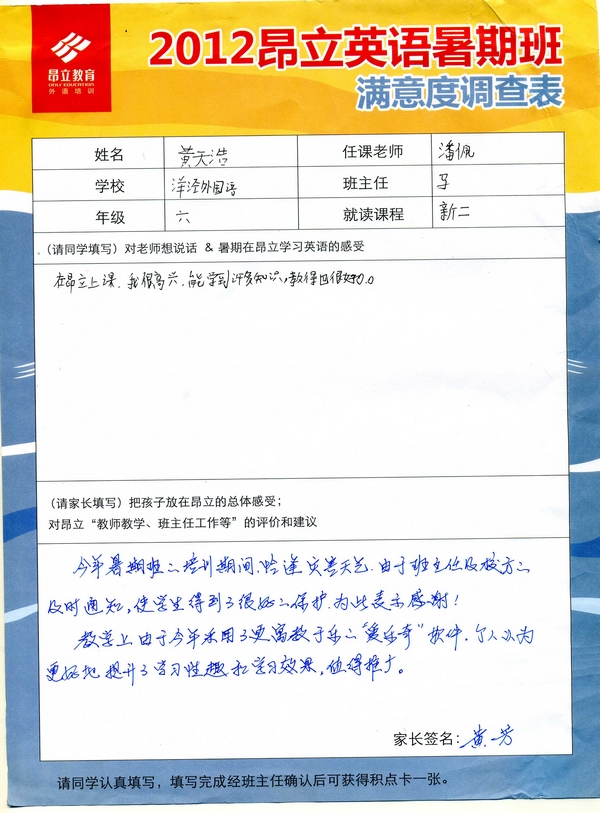 昂立教育
ONLY EDUCATION
外语培训
2012昂立英语暑期班
满意度调查表
姓名 黄天浩 任课老师 潘佩
学校 洋泾外国语 班主任 马
年级 六 就读课程 新二
(请同学填写)对老师想说话 & 暑期在昂立学习英语的感受
在昂立上课,我很高兴,能学到许多知识,教得也很好。
(请家长填写)把孩子放在昂立的总体感受;
对昂立“教师教学、班主任工作等”的评价和建议
今年暑期班的培训期间,恰逢灾害天气,由于班主任及校方的
及时通知,使学生得到了很好的保护,为此表示感谢!
教学上由于今年采用了更寓教于乐的“爱乐奇”软件,个人认为
更好地提升了学习性趣和学习效果,值得推广。
家长签名: 黄芳
请同学认真填写,填写完成经班主任确认后可获得积点卡一张。